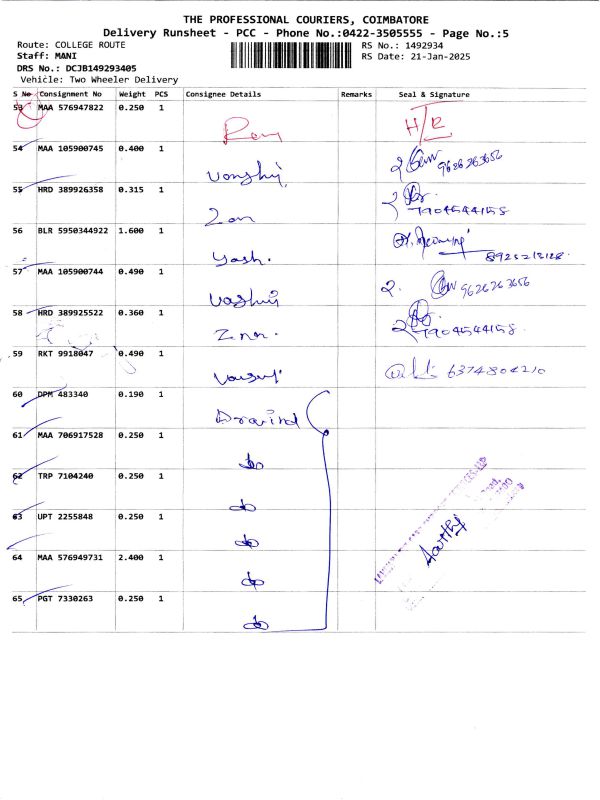 THE PROFESSIONAL COURIERS, COIMBATORE
Delivery Runsheet - PCC - Phone No.:0422-3505555 - Page No.:5
Route: COLLEGE ROUTE RS No.: 1492934
Staff: MANI RS Date: 21-Jan-2025
DRS No.: DCJB149293405
Vehicle: Two Wheeler Delivery
S No Consignment No Weight PCS Consignee Details Remarks Seal & Signature
53 MAA 576947822 0.250 1
54 MAA 105900745 0.400 1 9626263656
55 HRD 389926358 0.315 1 7904544158
56 BLR 5950344922 1.600 1 Yash. 8925212128
57 MAA 105900744 0.490 1 2. 9626263656
58 HRD 389925522 0.360 1 7904544158
59 RKT 9918047 0.490 1 6374804210
60 DPM 483340 0.190 1 Aravind
61 MAA 706917528 0.250 1 do
62 TRP 7104240 0.250 1 do
63 UPT 2255848 0.250 1 do
64 MAA 576949731 2.400 1 do
65 PGT 7330263 0.250 1 do
Aarthi